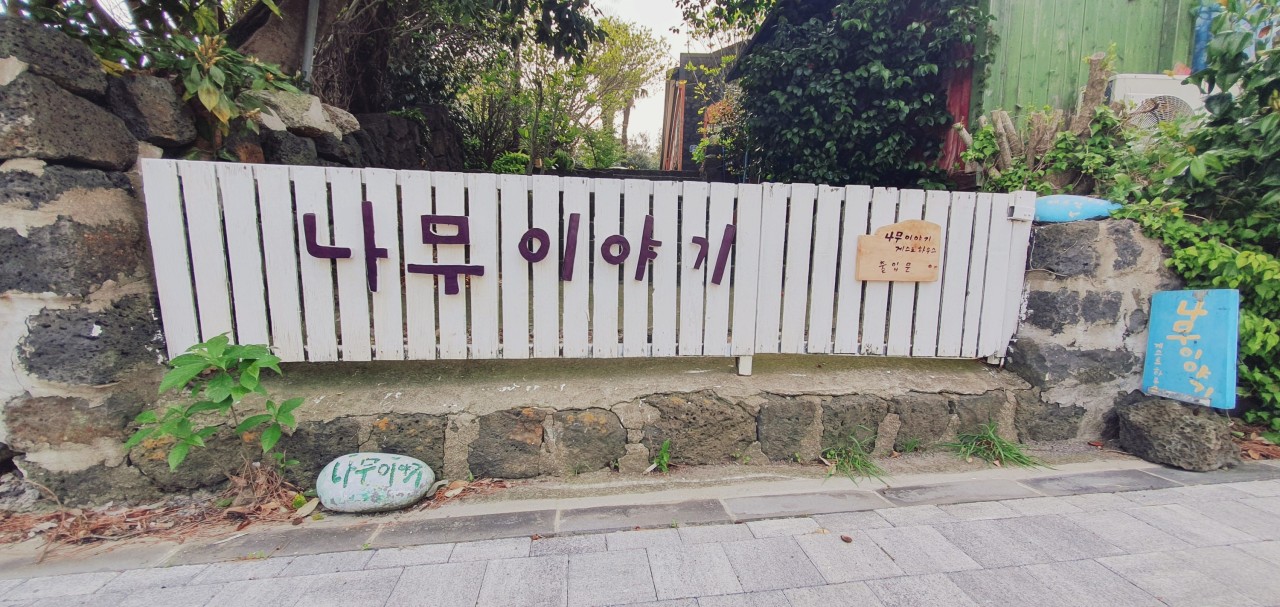 나무이야기
나무이야기
게스트하우스
돌입문
나무이야기
게스트하우스
나무이야기